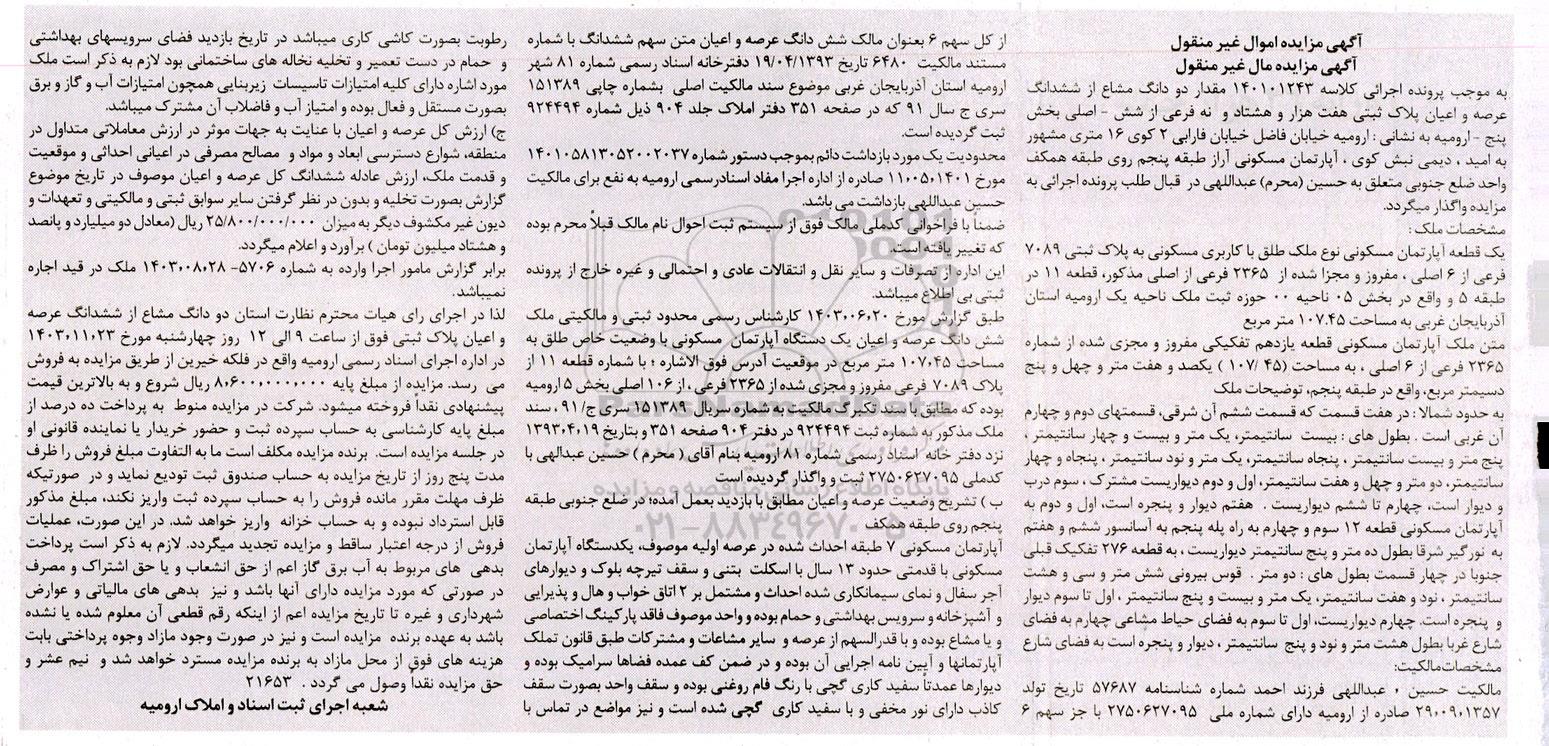 آگهی مزایده اموال غیر منقول
آگهی مزایده مال غیر منقول
به موجب پرونده اجرائی کلاسه ۱۴۰۱۰۱۲۴۳ مقدار دو دانگ مشاع از ششدانگ
عرصه و اعیان پلاک ثبتی هفت هزار و هشتاد و  نه فرعی از شش - اصلی بخش
پنج - ارومیه به نشانی : ارومیه خیابان فاضل خیابان فارابی ۲ کوی ۱۶ متری مشهور
به امید ، دیمی نبش کوی ، آپارتمان مسکونی آراز طبقه پنجم روی طبقه همکف
واحد ضلع جنوبی متعلق به حسین (محرم) عبداللهی در  قبال طلب پرونده اجرائی به
مزایده واگذار میگردد.
مشخصات ملک :
یک قطعه آپارتمان مسکونی نوع ملک طلق با کاربری مسکونی به پلاک ثبتی ۷۰۸۹
فرعی از ۶ اصلی ، مفروز و مجزا شده از  ۲۳۶۵ فرعی از اصلی مذکور، قطعه ۱۱ در
طبقه ۵ و واقع در بخش ۰۵ ناحیه ۰۰ حوزه ثبت ملک ناحیه یک ارومیه استان
آذربایجان غربی به مساحت ۱۰۷.۴۵ متر مربع
متن ملک آپارتمان مسکونی قطعه یازدهم تفکیکی مفروز و مجزی شده از شماره
۲۳۶۵ فرعی از ۶ اصلی ، به مساحت (۴۵ /۱۰۷ ) یکصد و هفت متر و چهل و پنج
دسیمتر مربع، واقع در طبقه پنجم، توضیحات ملک
به حدود شمالا : در هفت قسمت که قسمت ششم آن شرقی، قسمتهای دوم و چهارم
آن غربی است . بطول های : بیست  سانتیمتر، یک متر و بیست و چهار سانتیمتر ،
پنج متر و بیست سانتیمتر ، پنجاه سانتیمتر، یک متر و نود سانتیمتر ، پنجاه و چهار
سانتیمتر، دو متر و چهل و هفت سانتیمتر، اول و دوم دیواریست مشترک ، سوم درب
و دیوار است، چهارم تا ششم دیواریست .  هفتم دیوار و پنجره است، اول و دوم به
آپارتمان مسکونی قطعه ۱۲ سوم و چهارم به راه پله پنجم به آسانسور ششم و هفتم
به نورگیر شرقا بطول ده متر و پنج سانتیمتر دیواریست ، به قطعه ۲۷۶ تفکیک قبلی
جنوبا در چهار قسمت بطول های : دو متر .  قوس بیرونی شش متر و سی و هشت
سانتیمتر ، نود و هفت سانتیمتر، یک متر و بیست و پنج سانتیمتر ، اول تا سوم دیوار
و پنجره است. چهارم دیواریست، اول تا سوم به فضای حیاط مشاعی چهارم به فضای
شارع غربا بطول هشت متر و نود و پنج  سانتیمتر ، دیوار و پنجره است به فضای شارع
مشخصات مالکیت:
مالکیت حسین ، عبداللهی فرزند احمد شماره شناسنامه ۵۷۶۸۷ تاریخ تولد
۲۹،۰۹،۱۳۵۷ صادره از ارومیه دارای شماره ملی  ۲۷۵۰۶۲۷۰۹۵ با جز سهم ۶
از کل سهم ۶ بعنوان مالک شش دانگ عرصه و اعیان متن سهم ششدانگ با شماره
مستند مالکیت  ۶۴۸۰ تاریخ ۱۹/۰۴/۱۳۹۳ دفترخانه اسناد رسمی شماره ۸۱ شهر
ارومیه استان آذربایجان غربی موضوع سند مالکیت اصلی  بشماره چاپی ۱۵۱۳۸۹
سری ج سال ۹۱ که در صفحه ۳۵۱ دفتر املاک جلد ۹۰۴ ذیل شماره ۹۲۴۴۹۴
ثبت گردیده است.
محدودیت یک مورد بازداشت دائم بموجب دستور شماره ۱۴۰۱۰۵۸۱۳۰۵۲۰۰۲۰۳۷
مورخ ۱۱،۰۵،۱۴۰۱ صادره از اداره اجرا مفاد اسنادرسمی ارومیه به نفع برای مالکیت
حسین عبداللهی بازداشت می باشد.
ضمناً با فراخوانی کدملی مالک فوق از سیستم ثبت احوال نام مالک قبلاً محرم بوده
که تغییر یافته است.
این اداره از تصرفات و سایر نقل و انتقالات عادی و احتمالی و غیره خارج از پرونده
ثبتی بی اطلاع میباشد.
طبق گزارش مورخ ۱۴۰۳،۰۶،۲۰ کارشناس رسمی محدود ثبتی و مالکیتی ملک
شش دانگ عرصه و اعیان یک دستگاه آپارتمان  مسکونی با وضعیت خاص طلق به
مساحت ۱۰۷،۴۵ متر مربع در موقعیت آدرس فوق الاشاره ؛ با شماره قطعه ۱۱ از
پلاک ۷۰۸۹ فرعی مفروز و مجزی شده از ۲۳۶۵ فرعی ، از ۱۰۶ اصلی بخش ۵ ارومیه
بوده که مطابق با سند تکبرگ مالکیت به شماره سریال  ۱۵۱۳۸۹ سری ج/ ۹۱ ، سند
ملک مذکور به شماره ثبت ۹۲۴۴۹۴ در دفتر ۹۰۴ صفحه ۳۵۱ و بتاریخ ۱۳۹۳،۴،۱۹
نزد دفتر خانه اسناد رسمی شماره ۸۱ ارومیه بنام آقای ( محرم ) حسین عبدالهی با
کدملی ۲۷۵۰۶۲۷۰۹۵ ثبت و واگذار گردیده است
ب ) تشریح وضعیت عرصه و اعیان مطابق با بازدید بعمل آمده؛ در ضلع جنوبی طبقه
پنجم روی طبقه همکف
آپارتمان مسکونی ۷ طبقه احداث شده در عرصه اولیه موصوف، یکدستگاه آپارتمان
مسکونی با قدمتی حدود ۱۳ سال با اسکلت  بتنی و سقف تیرچه بلوک و دیوارهای
آجر سفال و نمای سیمانکاری شده احداث و مشتمل بر ۲ اتاق خواب و هال و پذیرایی
و آشپزخانه و سرویس بهداشتی و حمام بوده و واحد موصوف فاقد پارکینگ اختصاصی
و یا مشاع بوده و با قدرالسهم از عرصه و  سایر مشاعات و مشترکات طبق قانون تملک
آپارتمانها و آیین نامه اجرایی آن بوده و در ضمن کف عمده فضاها سرامیک بوده و
دیوارها عمدتاً سفید کاری گچی با رنگ فام روغنی بوده و سقف واحد بصورت سقف
کاذب دارای نور مخفی و با سفید کاری  گچی شده است و نیز مواضع در تماس با
رطوبت بصورت کاشی کاری میباشد در تاریخ بازدید فضای سرویسهای بهداشتی
و  حمام در دست تعمیر و تخلیه نخاله های ساختمانی بود لازم به ذکر است ملک
مورد اشاره دارای کلیه امتیازات تاسیسات  زیربنایی همچون امتیازات آب و گاز و برق
بصورت مستقل و فعال بوده و امتیاز آب و فاضلاب آن مشترک میباشد.
ج) ارزش کل عرصه و اعیان با عنایت به جهات موثر در ارزش معاملاتی متداول در
منطقه، شوارع دسترسی ابعاد و مواد و  مصالح مصرفی در اعیانی احداثی و موقعیت
و قدمت ملک، ارزش عادله ششدانگ کل عرصه و اعیان موصوف در تاریخ موضوع
گزارش بصورت تخلیه و بدون در نظر گرفتن سایر سوابق ثبتی و مالکیتی و تعهدات و
دیون غیر مکشوف دیگر به میزان  ۲۵/۸۰۰/۰۰۰/۰۰۰ ریال (معادل دو میلیارد و پانصد
و هشتاد میلیون تومان ) برآورد و اعلام میگردد.
برابر گزارش مامور اجرا وارده به شماره ۵۷۰۶- ۱۴۰۳،۰۸،۲۸ ملک در قید اجاره
نمیباشد.
لذا در اجرای رای هیات محترم نظارت استان دو دانگ مشاع از ششدانگ عرصه
و اعیان پلاک ثبتی فوق از ساعت ۹ الی ۱۲  روز چهارشنبه مورخ ۱۴۰۳،۱۱،۲۳
در اداره اجرای اسناد رسمی ارومیه واقع در فلکه خیرین از طریق مزایده به فروش
می  رسد. مزایده از مبلغ پایه ۸،۶۰۰،۰۰۰،۰۰۰ ریال شروع و به بالاترین قیمت
پیشنهادی نقداً فروخته میشود. شرکت در مزایده منوط  به پرداخت ده درصد از
مبلغ پایه کارشناسی به حساب سپرده ثبت و حضور خریدار یا نماینده قانونی او
در جلسه مزایده است.  برنده مزایده مکلف است ما به التفاوت مبلغ فروش را ظرف
مدت پنج روز از تاریخ مزایده به حساب صندوق ثبت تودیع نماید و در  صورتیکه
ظرف مهلت مقرر مانده فروش را به حساب سپرده ثبت واریز نکند، مبلغ مذکور
قابل استرداد نبوده و به حساب خزانه  واریز خواهد شد. در این صورت، عملیات
فروش از درجه اعتبار ساقط و مزایده تجدید میگردد. لازم به ذکر است پرداخت
بدهی  های مربوط به آب برق گاز اعم از حق انشعاب و یا حق اشتراک و مصرف
در صورتی که مورد مزایده دارای آنها باشد و نیز  بدهی های مالیاتی و عوارض
شهرداری و غیره تا تاریخ مزایده اعم از اینکه رقم قطعی آن معلوم شده یا نشده
باشد به عهده برنده  مزایده است و نیز در صورت وجود مازاد وجوه پرداختی بابت
هزینه های فوق از محل مازاد به برنده مزایده مسترد خواهد شد و  نیم عشر و
حق مزایده نقداً وصول می گردد .  ۲۱۶۵۳
شعبه اجرای ثبت اسناد و املاک ارومیه
ParsNamadData
پایگاه اطلاع رسانی مناقصه و مزایده
۰۲۱-۸۸۳۴۹۶۷۰-۵